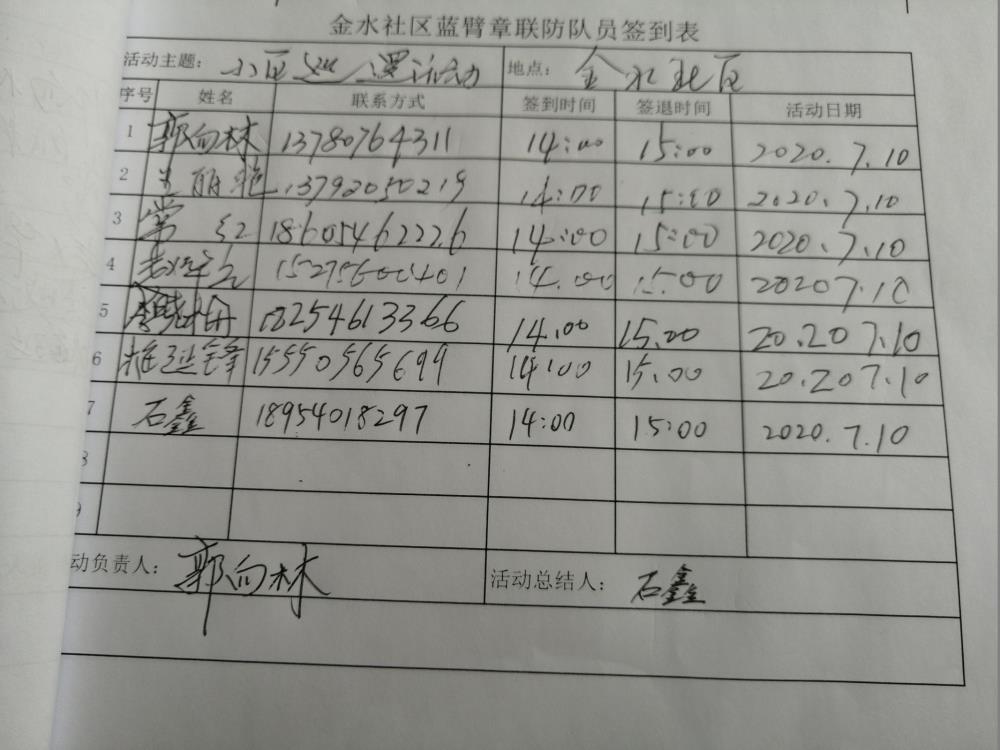 金水社区蓝臂章联防队员签到表
活动主题： 小区巡逻活动 地点： 金水社区
序号 姓名 联系方式 签到时间 签退时间 活动日期
1 郭向林 13780764311 14:00 15:00 2020.7.10
2 丽艳 13792050219 14:00 15:00 2020.7.10
3 常红 18605462226 14:00 15:00 2020.7.10
4 14.00 15.00 20207.10
5 18254613366 14.00 15.00 20.207.10
6 15550565699 14:00 15.00 20.207.10
7 石鑫 18954018297 14:00 15:00 2020.7.10
8
9
动负责人： 郭向林 活动总结人： 石鑫